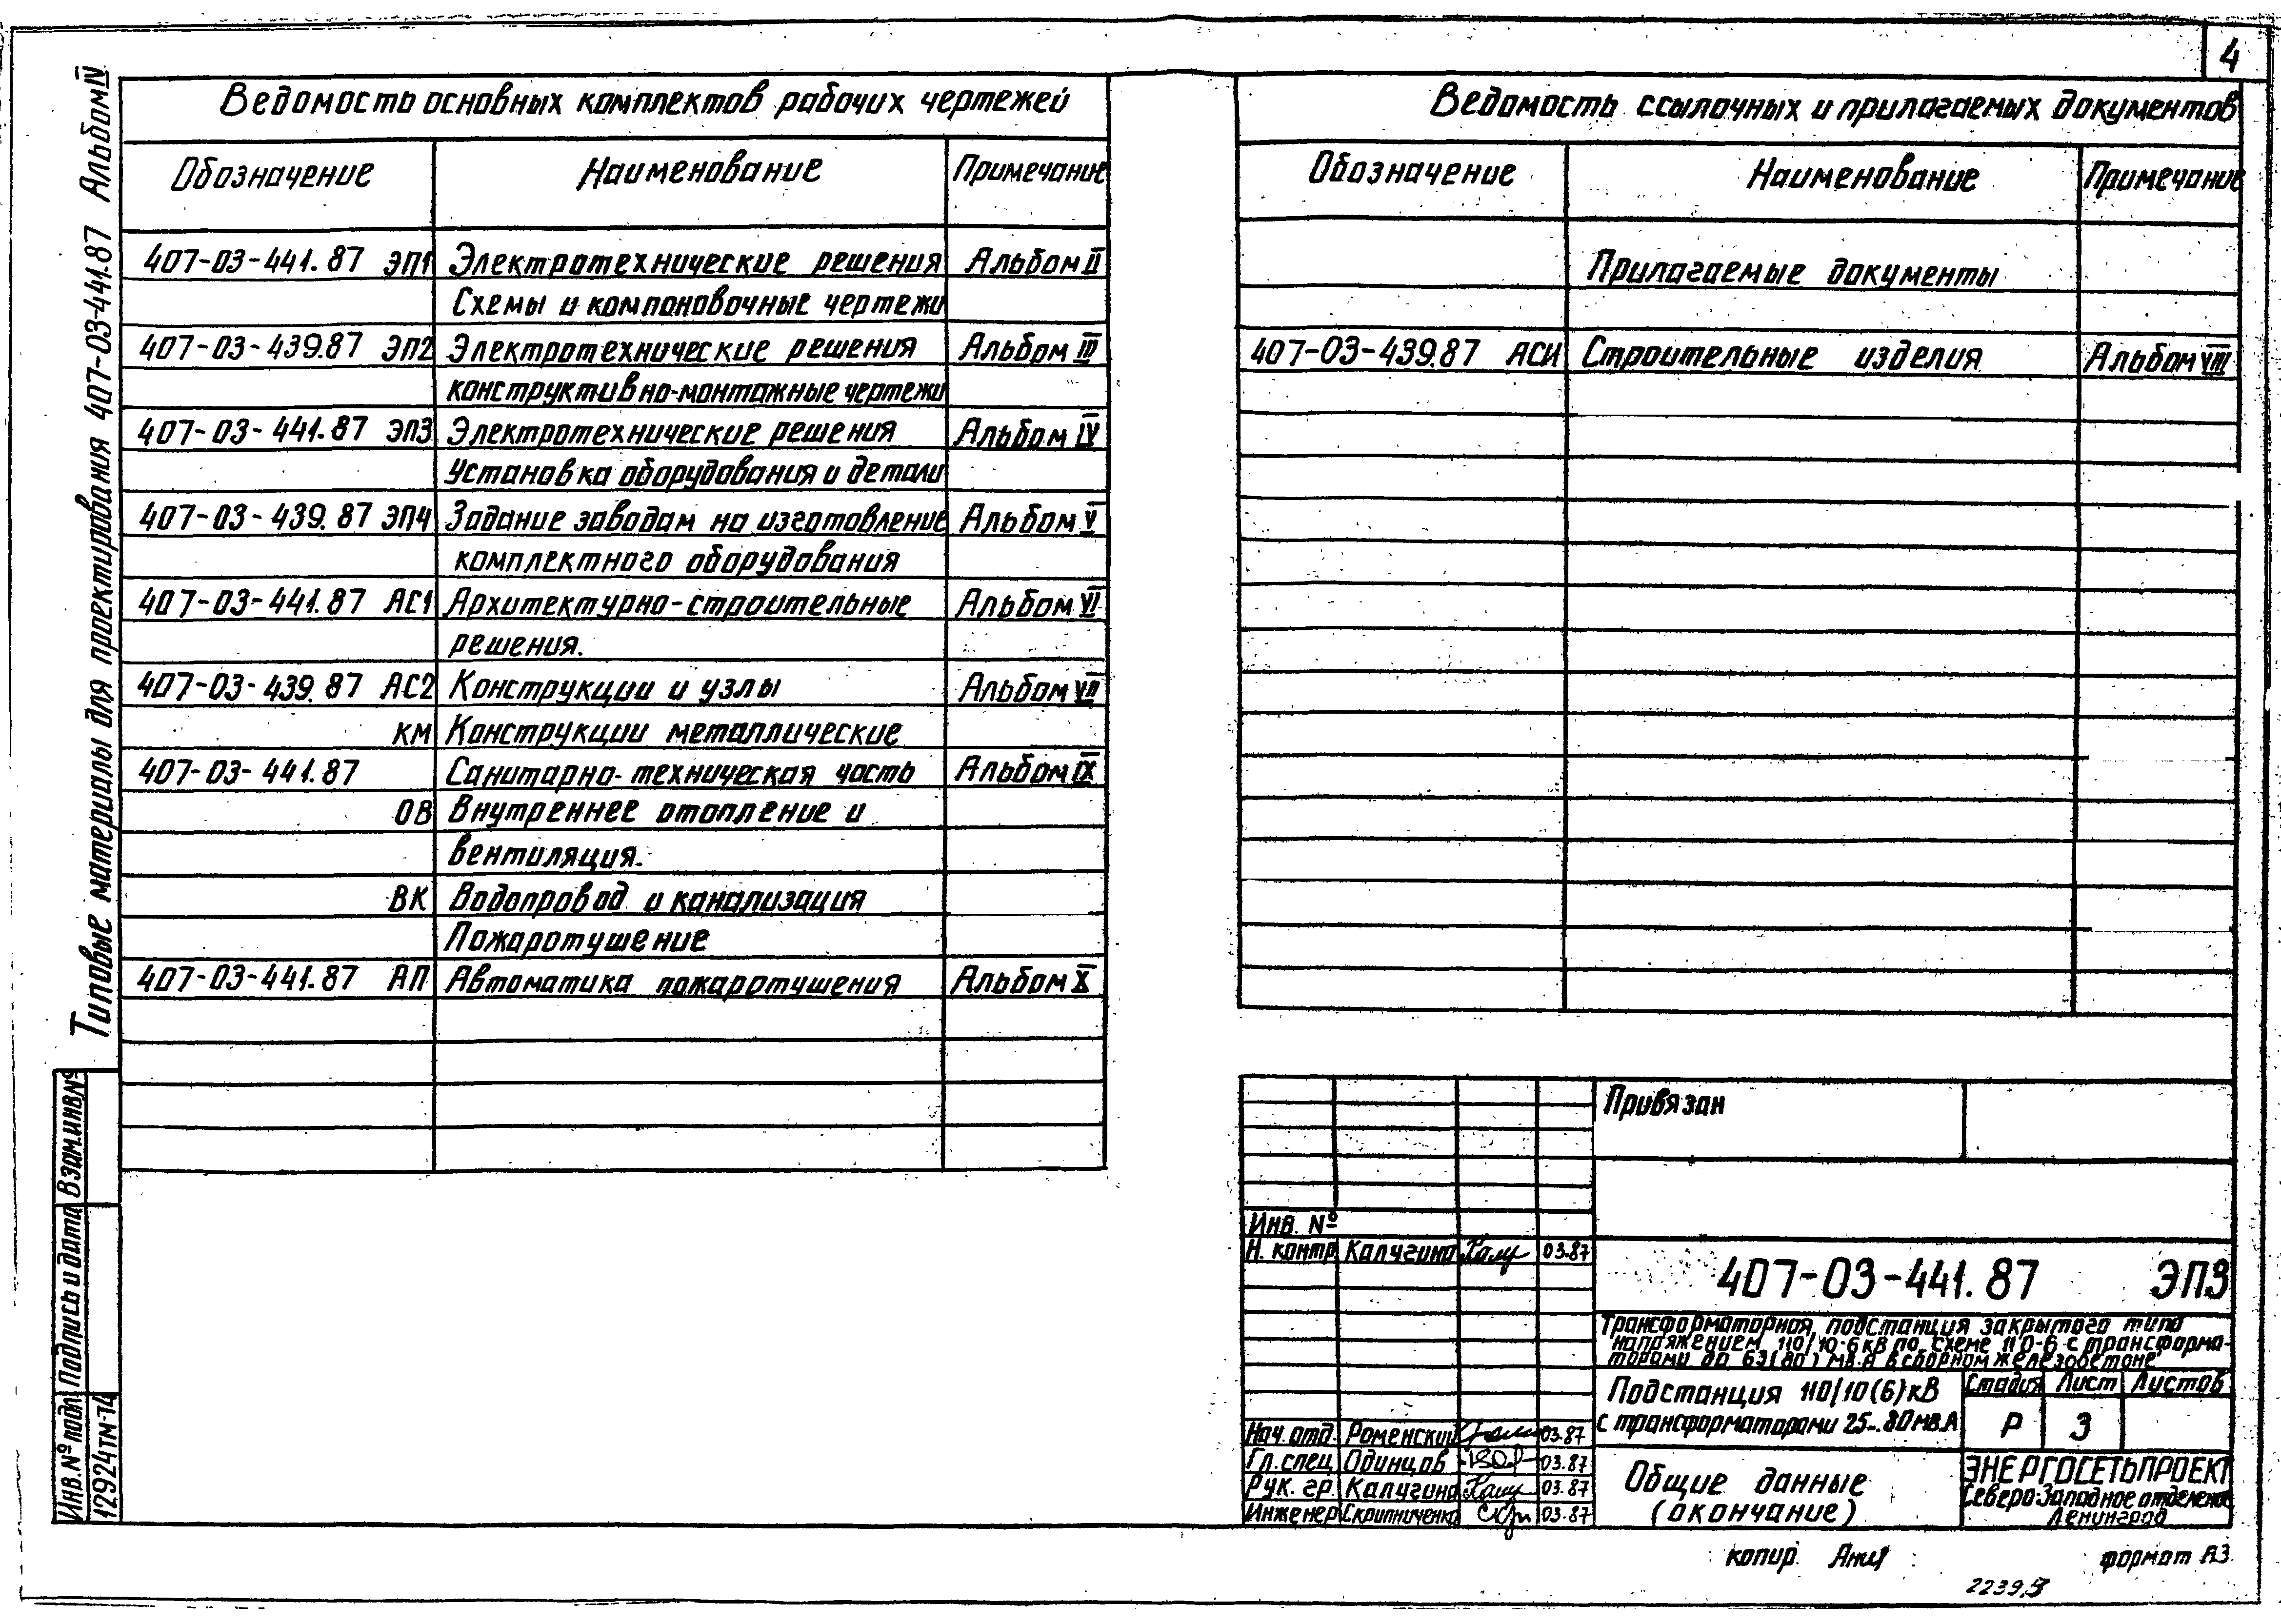 4
Типовые материалы для проектирования 407-03-441.87 Альбом IV
Ведомость основных комплектов рабочих чертежей
Обозначение Наименование Примечание
407-03-441.87 ЭП1 Электротехнические решения Альбом II
Схемы и компоновочные чертежи
407-03-439.87 ЭП2 Электротехнические решения Альбом III
конструктивно-монтажные чертежи
407-03-441.87 ЭП3 Электротехнические решения Альбом IV
Установка оборудования и детали
407-03-439.87 ЭП4 Задание заводам на изготовление Альбом V
комплектного оборудования
407-03-441.87 АС1 Архитектурно-строительные Альбом VI
решения.
407-03-439.87 АС2 Конструкции и узлы Альбом VII
КМ Конструкции металлические
407-03-441.87 Санитарно-техническая часть Альбом IX
ОВ Внутреннее отопление и
вентиляция.
ВК Водопровод и канализация
Пожаротушение
407-03-441.87 АП Автоматика пожаротушения Альбом X
Ведомость ссылочных и прилагаемых документов
Обозначение Наименование Примечание
Прилагаемые документы
407-03-439.87 АСИ Строительные изделия Альбом VIII
Взам.инв.№
Подпись и дата
Инв.№ подл.
12924тм-14
Привязан
Инв. №
Н. контр. Калугина 03.87
407-03-441.87 ЭП3
Трансформаторная подстанция закрытого типа
напряжением 110/10-6кВ по схеме 110-6 с трансформа-
торами до 63(80) МВ.А в сборном железобетоне
Подстанция 110/10(6)кВ
с трансформаторами 25...80МВ.А
Стадия Лист Листов
Р 3
Нач. отд. Роменский 03.87
Гл. спец. Одинцов 03.87
Рук. гр. Калугина 03.87
Инженер Скрипниченко 03.87
Общие данные
(окончание)
ЭНЕРГОСЕТЬПРОЕКТ
Северо-Западное отделение
Ленинград
копир.
формат А3